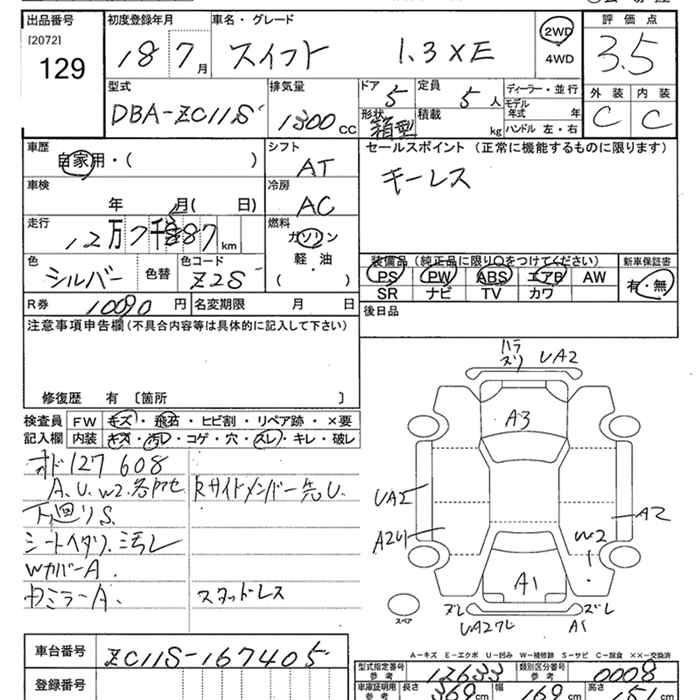 出品番号 初度登録年月 車名・グレード 評価点
[2072]
129 18 7月 スイフト 1.3 XE 2WD 4WD 3.5
型式 排気量 ドア 定員 ディーラー・並行 外装 内装
DBA-ZC11S 1300 cc 5 5人 モデル年式 年 C C
形状 箱型 積載 kg ハンドル 左・右
車歴 シフト セールスポイント (正常に機能するものに限ります)
自家用・( ) AT キーレス
車検 冷房
年 月( 日) AC
走行 燃料
12万7千887 km ガソリン
軽・油
( )
色 色コード 装備品 (純正品に限り○をつけてください) 新車保証書
シルバー 色替 Z2S PS PW ABS エアB AW 有・無
SR ナビ TV カワ
R券 10090円 名変期限 月 日 後日品
注意事項申告欄 (不具合内容等は具体的に記入して下さい)
修復歴 有 〔箇所 〕
検査員 FW キズ・飛石・ヒビ割・リペア跡・×要
記入欄 内装 キズ・汚レ・コゲ・穴・スレ・キレ・破レ
オド127608
A.U.W2.各所 Rサイドメンバー先U.
下廻りS.
シートヘタリ.汚レ
WカバーA.
ミラーA. スタッドレス
UA2
A3
UA2
A2
W2
A1
ズレ ズレ
A1
スペア
A-キズ E-エクボ U-凹み W-補修跡 S-サビ C-腐食 ××-交換済
車台番号 ZC11S-167405
登録番号
型式指定番号 参考 12633 類別区分番号 参考 0008
車庫証明用 参考 長さ 369cm 幅 169cm 高さ 151cm